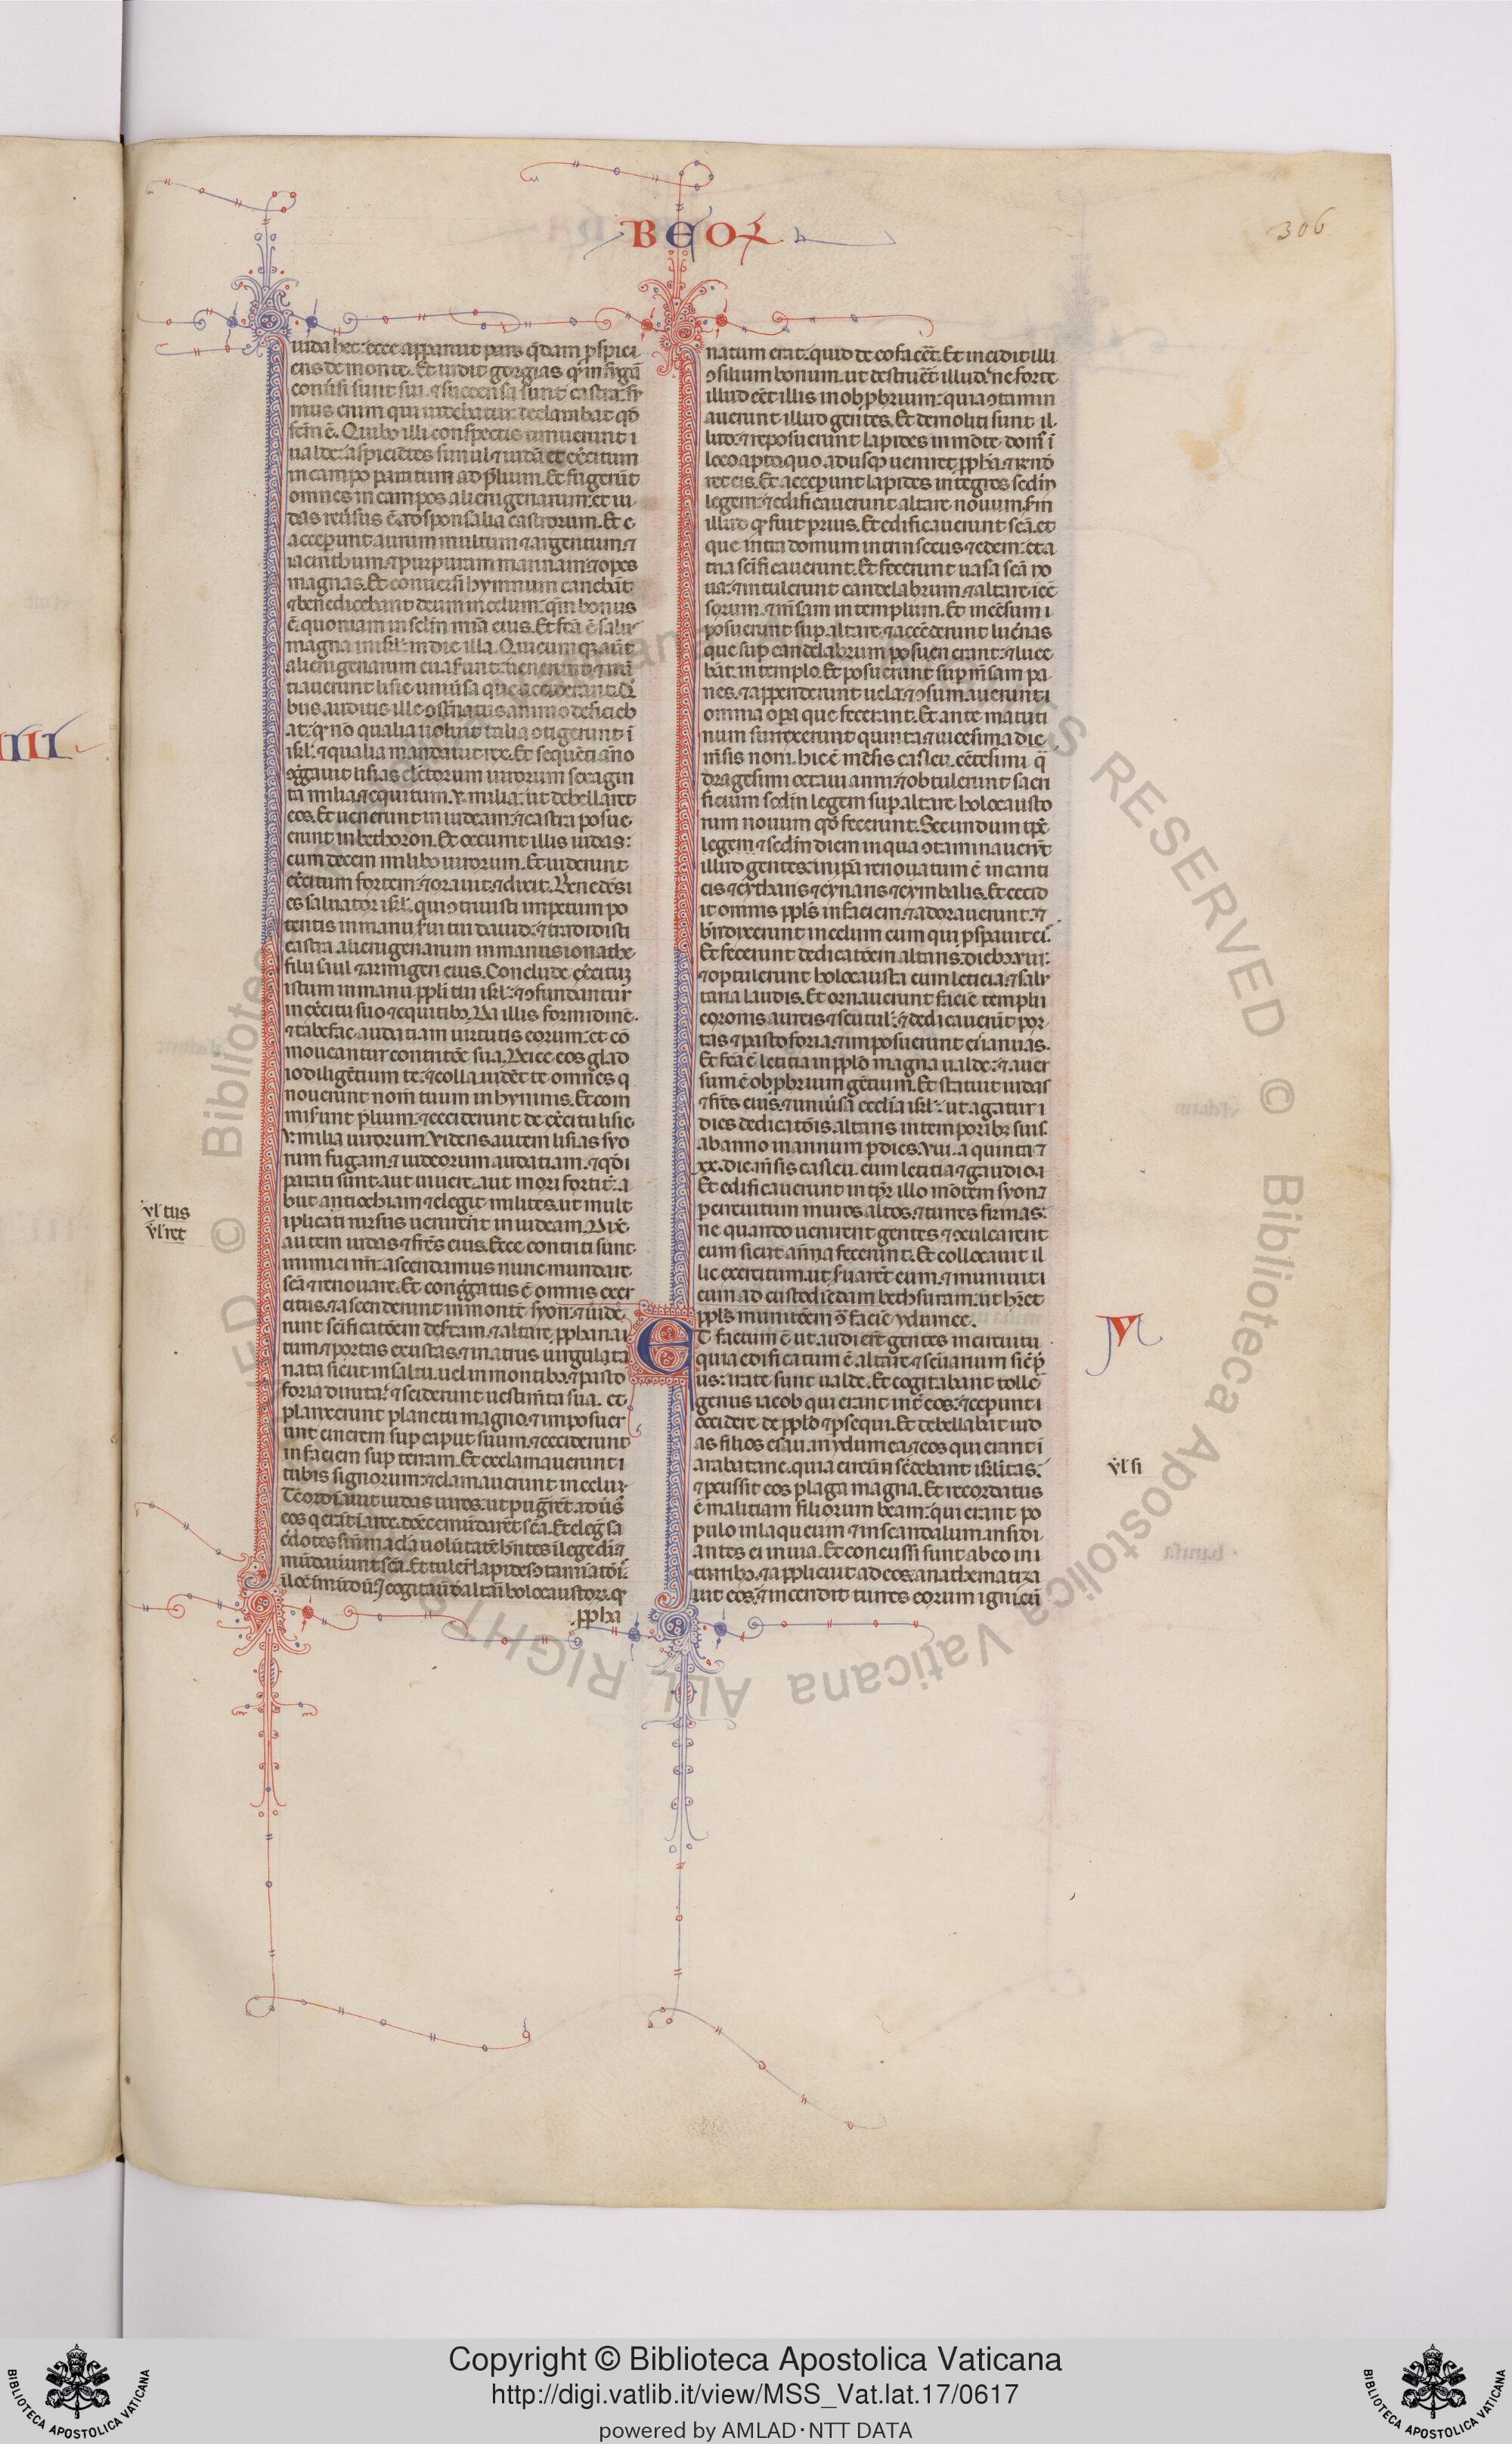 BEOꝝ
306
iuda hec: ecce apparuit pars q̄dam ꝓspici
ens de monte. Et uidit gorgias qͥ in fugā
conũsi sunt sui. ⁊ succensa sunt castra: fu
mus enim qui uidebatur declarabat qḋ
fc̄m ē. Quibꝰ illi conspectis timuerunt
ualde: aspicientes simul ⁊ iudā et exc̄itum
in campo paratum ad p̄lium. Et fugerūt
omnes in campos alienigenarum: et iu
das reũsus ē ad sponsalia castrorum. Et
acceperunt aurum multum ⁊ argentum ⁊
iacinthum ⁊ purpuram marinam ⁊ opes
magnas. Et conuersi hymnum canebāt
⁊ benedicebant deum in celum: qm̄ bonus
ē. quoniam in sc̄lm mīa eius. Et fc̄a ē salus
magna in isrl̄ in die illa. Quicumqꝫ aūt
alienigenarum euaserunt: uenerunt ⁊ nū
tiauerunt lisie uniũsa que acciderant. Qͥ
bus auditis ille ↄsternatus animo deficieb
at: qͥ nō qualia uoluit talia ↄtigerunt ī
isrl̄. ⁊ qualia mandauit rex. Et sequēti āno
ↄgͤgauit lisias electorum uirorum sexagin
ta milia. ⁊ equitum .v. milia: ut debellaret
eos. Et uenerunt in iudeam: ⁊ castra posue
erunt in bethoron. Et occurrit illis iudas:
cum decem milibꝰ uirorum. Et uiderunt
exc̄itum fortem: ⁊ orauit: ⁊ dixit. Benedc̄s
es saluator isrl̄. qui ↄtriuisti impetum po
tentis in manu serui tui dauid: ⁊ tradidisti
castra alienigenarum in manus ionathe
filii saul ⁊ armigeri eius. Conclude exc̄ituꝫ
istum in manu ppl̄i tui isrl̄: ⁊ ↄfundantur
in exc̄itu suo ⁊ equitibꝰ. Da illis formidinē.
⁊ tabefac audatiam uirtutis eorum: et cō
moueantur contritōe sua. Deice eos glad
io diligētium te: ⁊ colla udēt te omnes q
nouerunt nom̄ tuum in hymnis. Et com
miserunt p̄lium: ⁊ ceciderunt de exc̄itu lisie
v. milia uirorum. Videns autem lisias suo
rum fugam: ⁊ iudeorum audatiam. ⁊ qḋ
parati sunt aut uiuere. aut mori fortit̄: a
biit antiochiam ⁊ elegit milites. ut mult
iplicati rursus uenirent in iudeam. Dix̄
autem iudas ⁊ fr̄es eius. Ecce contriti sunt
inimici nr̄i: ascendamus nunc mundare
sc̄a ⁊ renouare. Et congͤgatus ē omnis exer
citus. ⁊ ascenderunt in montē syon: ⁊ uide
runt sc̄ificatōem desertam. ⁊ altare ꝓphana
tum: ⁊ portas exustas: ⁊ in atriis uirgulta
nata sicut in saltu. uel in montibꝰ. ⁊ pasto
foria diruta: ⁊ sciderunt uestim̄ta sua. et
planxerunt planctu magno. ⁊ imposuer
unt cinerem suꝑ caput suum. ⁊ ceciderunt
in faciem suꝑ terram. Et exclamauerunt
tubis signorum: ⁊ clamauerunt in celum.
Tc̄ ordinauit iudas uiros: ut pugn̄ret adũs
eos q̄ erāt ī arce. donec emūdarēt sc̄a. Et eleg̃ sa
c̄dotes sine macla uolūtatē hn̄tes ī lege dei: ⁊
mūdauūnt sc̄a. Et tuler̄ lapides ↄtamīatōis
ī locū īmūdū: ⁊ cogitauit de altari holocaustoꝝ. qḋ
ꝓpha
vl̓ tus
vl̓ ret
natum erat: quid de eo facēt. Et incidit illi
ↄsilium bonum. ut destruēt illud: ne forte
illud eēt illis in obꝓbrium: quia ↄtamin
auerunt illud gentes. Et demoliti sunt il
lud: ⁊ reposuerunt lapides in mōte dom' ī
loco apto. quo adusqꝫ ueniret ꝓpha. ⁊ rn̄d
ret eis. Et acceperunt lapides integros sc̄dm
legem: ⁊ edificauerunt altare nouum sm̄
illud qḋ fuit prius. Et edificauerunt sc̄a. et
que intra domum intrinsecus: ⁊ edem: et a
tria sc̄ificauerunt. Et fecerunt uasa sc̄a no
ua: ⁊ intulerunt candelabrum. ⁊ altare icē
sorum. ⁊ mēsam in templum. Et incēsum ī
posuerunt suꝑ altare. ⁊ accēderunt lucn̄as
que suꝑ candelabrum posuerant: ⁊ luce
bāt in templo. Et posuerunt suꝑ mēsam pa
nes. ⁊ appenderunt uela: ⁊ ↄsum.auerunt
omnia oꝑa que fecerant. Et ante matuti
num surrexerunt quinta ⁊ uicesima die
mēsis noni. hic ē mēsis casleu. cētesimi q̄
dragesimi octaui anni: ⁊ obtulerunt sacri
ficium sc̄dm legem suꝑ altare holocausto
rum nouum qḋ fecerunt. Secundum tp̄ꝰ
legem ⁊ sc̄dm diem in qua ↄtaminauer̄t
illud gentes: in ip̄a renouatum ē in canti
cis ⁊ cytharis ⁊ cynaris ⁊ cymbalis. Et cecid
it omnis ppl̄s in faciem. ⁊ adorauerunt: ⁊
bn̄dixerunt in celum eum qui ꝓspauit ei.
Et fecerunt dedicatōem altaris. diebꝰ .viii:
⁊ optulerunt holocausta cum leticia. ⁊ salu
taria laudis. Et ornauerunt faciē templi
coronis aureis ⁊ scutul̄: ⁊ dedicauerūt por
tas ⁊ pastoforia: ⁊ imposuerunt ei ianuas.
Et fc̄a ē letitia in ppl̄o magna ualde: ⁊ auer
sum ē obꝓbrium gētium. Et statuit iudas
⁊ fr̄es eius. ⁊ uniũsa eccl̄ia isrl̄: ut agatur
dies dedicatōis altaris in temporibꝫ suis.
ab anno in annum ꝑ dies .viii. a quinta ⁊
xx. die mēsis casleu. cum letitia ⁊ gaudio.
Et edificauerunt in tp̄r illo mōtem syon. ⁊
ꝑ circuitum muros altos. ⁊ turres firmas:
ne quando uenirent gentes ⁊ ↄculcarent
eum sicut an̄ea fecerunt. Et collocauit il
lic exercitum. ut s̃uarēt eum. ⁊ muniuit
eum ad custodiēdam bethsuram. ut hr̄et
ppl̄s munitōem ↄ̃ faciē ydumee.
V
ET factum ē ut audier̄t gentes in circuitu
quia edificatum ē altare ⁊ sc̄uarium sic p̄
us: irate sunt ualde. Et cogitabant tolle
genus iacob qui erant int̄ eos: ⁊ ceꝑunt
occidere de ppl̄o ⁊ ꝑsequi. Et debellabat iud
as filios esau in ydumea. ⁊ eos qui erant ī
arabatane. quia circūsedebant isrl̄itas:
⁊ ꝑcussit eos plaga magna. Et recordatus
ē malitiam filiorum bean: qui erant po
pulo in laqueum ⁊ in scandalum. insidi
antes ei in uia. Et conclusi sunt ab eo in
turribꝰ. ⁊ applicuit ad eos. anathematiza
uit eos. ⁊ incendit turres eorum igni. cū
vl̓ si
Copyright © Biblioteca Apostolica Vaticana
http://digi.vatlib.it/view/MSS_Vat.lat.17/0617
powered by AMLAD·NTT DATA
BIBLIOTECA APOSTOLICA VATICANA
BIBLIOTECA APOSTOLICA VATICANA